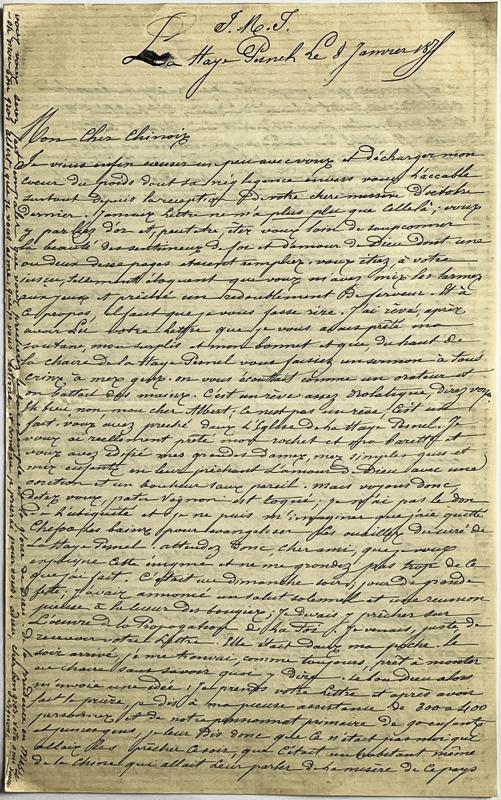 J. M. J.
La Haye Pesnel Le 8 Janvier 187
Mon Cher Chinois
Je viens enfin causer un peu avec vous et décharger mon
coeur du poids dont sa négligence envers vous l'accable
surtout depuis la réception de votre chère missive d'octobre
dernier. Jamais lettre ne m'a plus plu que celle là; vous
y parlez d'or et, peut être êtes vous loin de soupçonner
la beauté des sentiments de foi et d'amour de Dieu dont une
ou deux de ses pages étaient remplies. vous étiez à votre
insu, tellement éloquent que vous m'avez mis les larmes
aux yeux et prêché un redoublement de ferveur. Et à
ce propos, il faut que je vous fasse rire. J'ai rêvé, après
avoir lu votre lettre que je vous avais prêté ma
soutane, mon surplis et mon bonnet et que du haut de
la chaire de la Haye Pesnel vous faisiez un sermon à tous
crins à mes gens. on vous écoutait comme un orateur et
on battait des mains. C'est un rêve assez drolatique, direz vous
Eh bien non, mon cher Albert, ce n'est pas un rêve, C'est un
fait, vous avez prêché dans l'Eglise de la Haye Pesnel. Je
vous ai réellement prêté mon rochet et ma barette et
vous avez édifié mes grandes dames, mes simples gens et
mes enfants en leur prêchant l'amour de Dieu avec une
onction et un bonheur sans pareil. Mais voyons donc,
dites vous, Vagnon est toqué, je n'ai pas le don
d'ubiquité et je ne puis m'imaginer que j'aie quitté
pour évangéliser les ouailles du curé de
la Haye Pesnel. attendez donc, cher ami, que je vous
explique cette énigme et ne me grondez pas trop de ce
que j'ai fait. C'était un dimanche soir, jour de grande
fête; J'avais annoncé un salut solennel et une réunion
pieuse à la lueur des bougies; Je devais y prêcher sur
L'oeuvre de la Propagation de la Foi. Je venais, juste de
recevoir votre lettre. Elle était dans ma poche. Le
soir arrivé, je me trouvai, comme toujours, prêt à monter
en chaire sans savoir quoi y dire. Le bon Dieu alors
m'envoie une idée: Je prends votre lettre et après avoir
fait la prière, je dis à ma pieuse assistance de 300 à 400
personnes et de notre pensionnat primaire de 90 enfants
et jeunes gens, je leur dis donc que ce n'était pas moi qui
allais les prêcher ce soir, que c'était un habitant même
de la Chine qui allait leur parler de la misère de ce pays